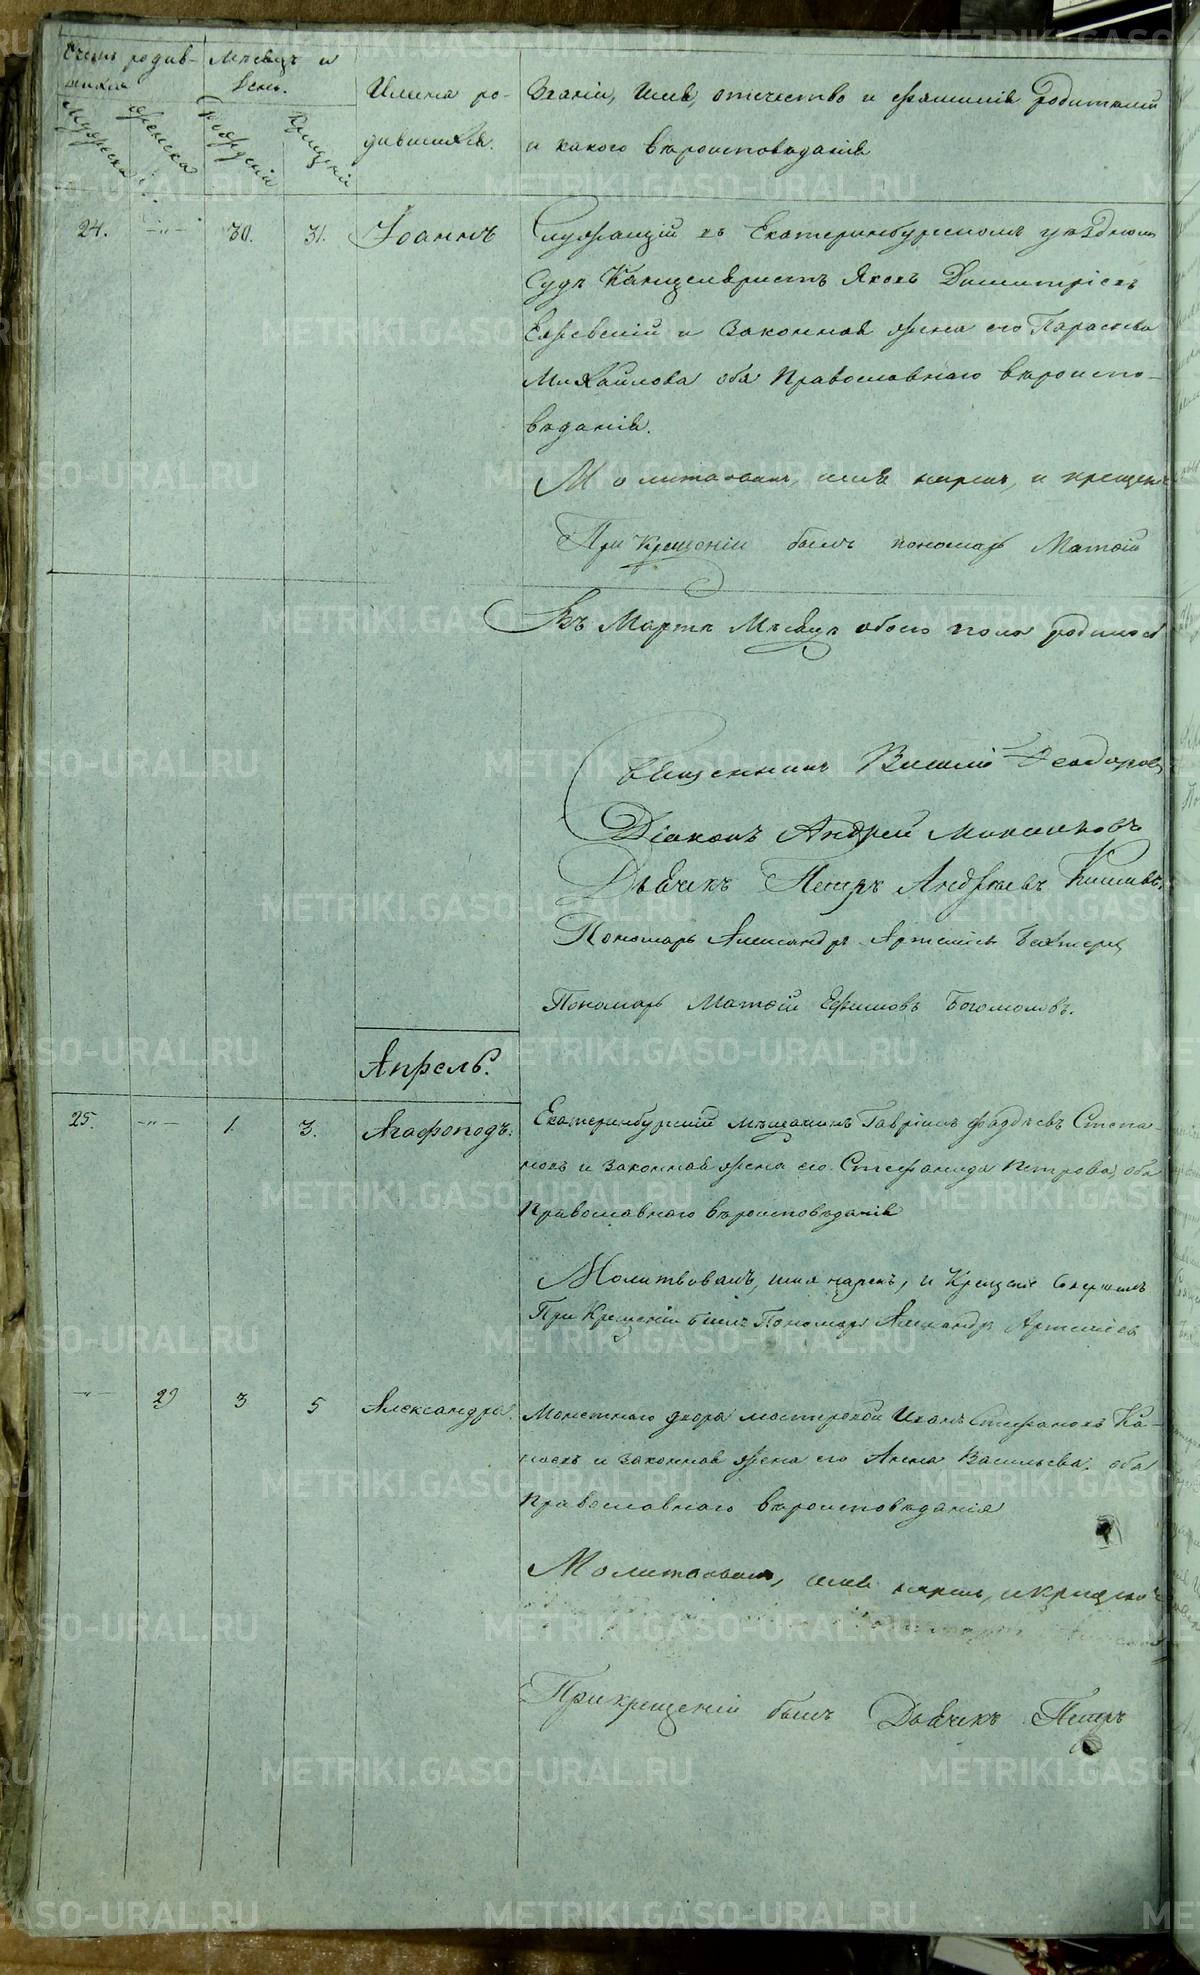 Счетъ родив-
шихся
Мѣсяцъ и
День.
Мужеска
Женска
Рожденія
Крещенія
Имена ро-
дившихся.
Званіе, Имя, отечество и фамилія Родителей
и какого вѣроисповѣданія
24. -"- 30. 31. Іоаннъ
Служащій въ Екатеринбургскомъ уѣздномъ
Судѣ Канцеляристъ Яковъ Димитріевъ
и Законная жена его Параскева
Михайлова оба Православнаго вѣроиспо-
вѣданія.
Молитвовалъ, имя нарекъ, и крещен
При Крещеніи былъ пономарь Матѳій
Въ Мартѣ Мѣсяцѣ обоего пола родилось
Священникъ Василій Феодоров
Діаконъ Андрей
Дьячекъ Петръ Андреевъ
Пономарь Александръ Артемьевъ
Пономарь Матѳій Ефимовъ Богомоловъ.
Апрель.
25. -"- 1. 3. Агафоподъ.
Екатеринбургскій мѣщанинъ Гавріилъ Фадѣевъ Степа-
новъ и законная жена его Стефанида Петрова, оба
Православнаго вѣроисповѣданія
Молитвовалъ, имя нарекъ, и Крещеніе Совершилъ
При Крещеніи былъ Пономарь Александръ Артемьевъ
-"- 29 3 5 Александра.
Монетнаго двора мастеровой Иванъ Стефановъ Ка-
и законная жена его Анна Васильева. оба
Православнаго вѣроисповѣданія
Молитвовалъ, имя нарекъ, и крещен
При крещеніи былъ Дьячекъ Петръ
METRIKI.GASO-URAL.RU